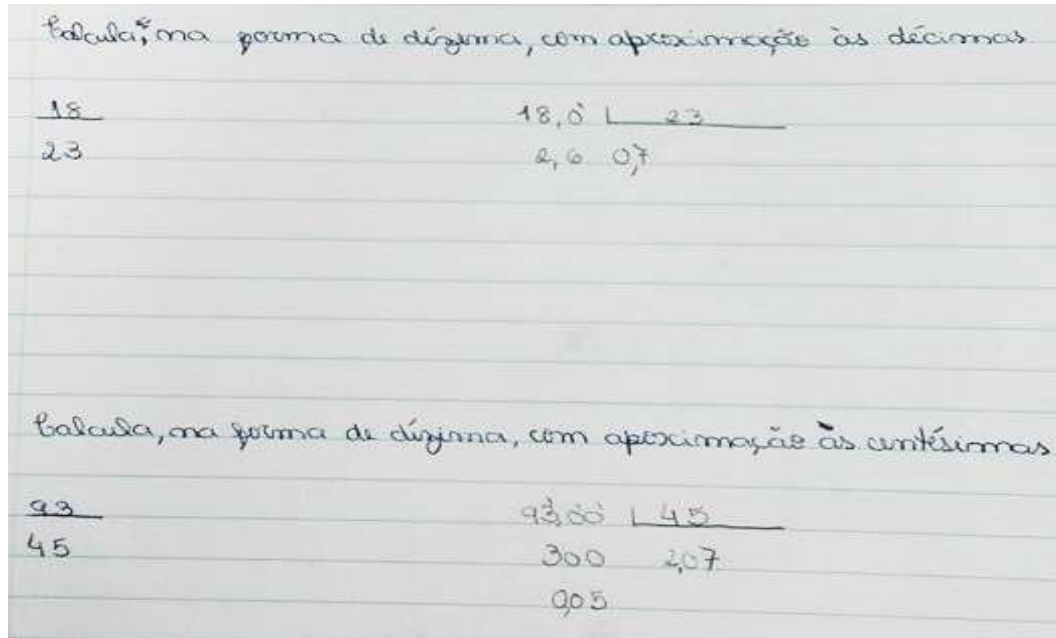 Calcula, na forma de dízima, com aproximação às décimas
18 18,0 23
23 2,6 0,7
Calcula, na forma de dízima, com aproximação às centésimas
93 93,00 45
45 300 2,07
0,05